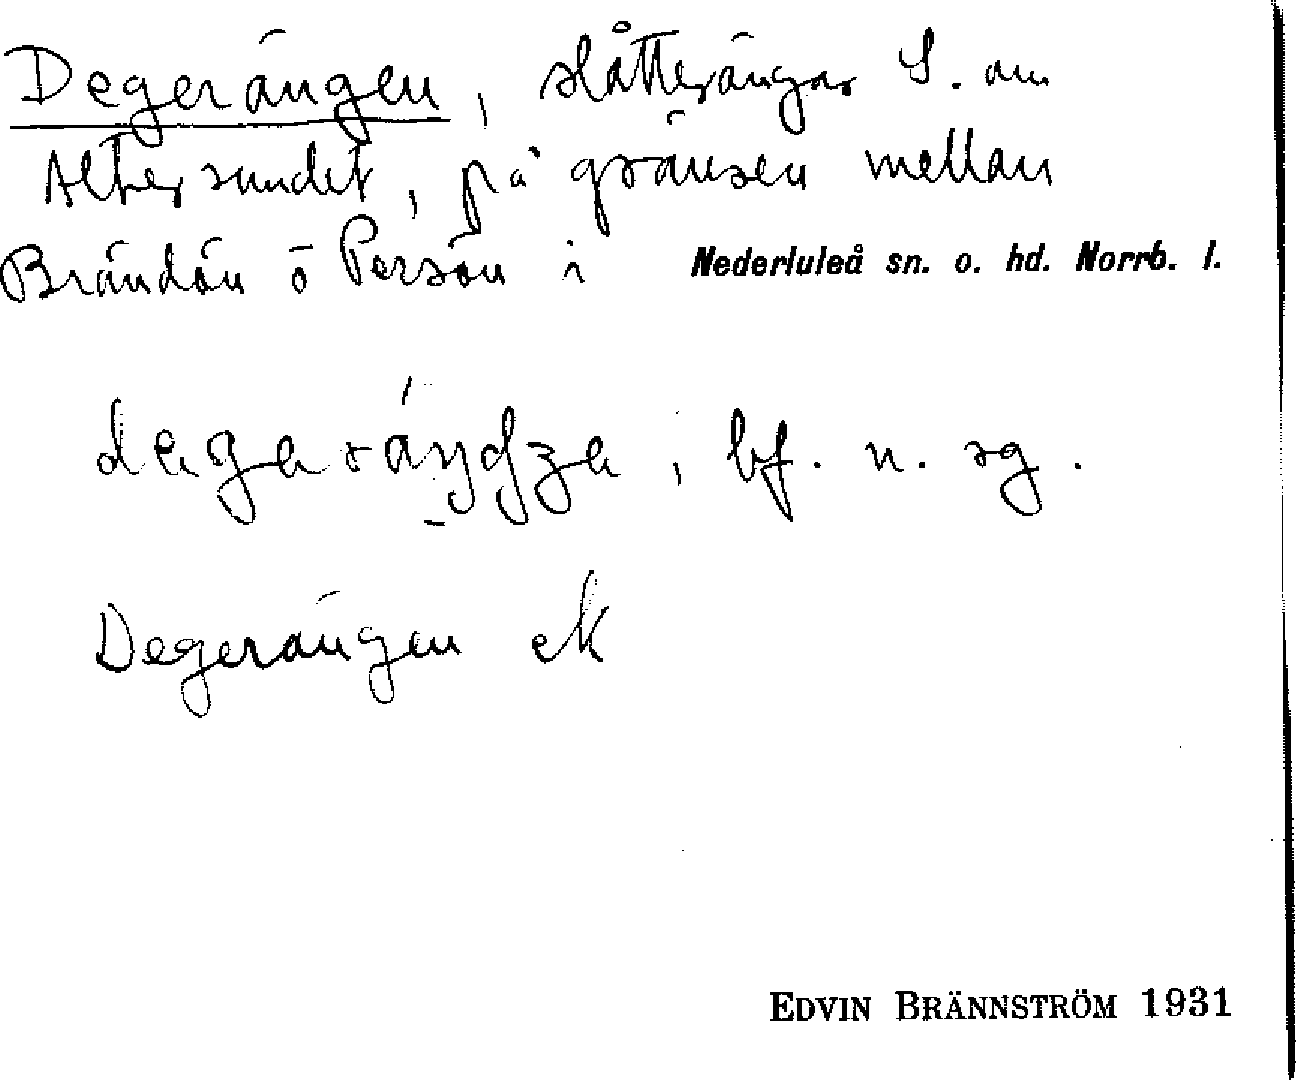 Degerängen, slåtterängar S. om
Altersundet, på gränsen mellan
Brändön o Persön i Nederluleå sn. o. hd. Norrb. l.
bf. n. sg.
Degerängen ek
EDVIN BRÄNNSTRÖM 1931